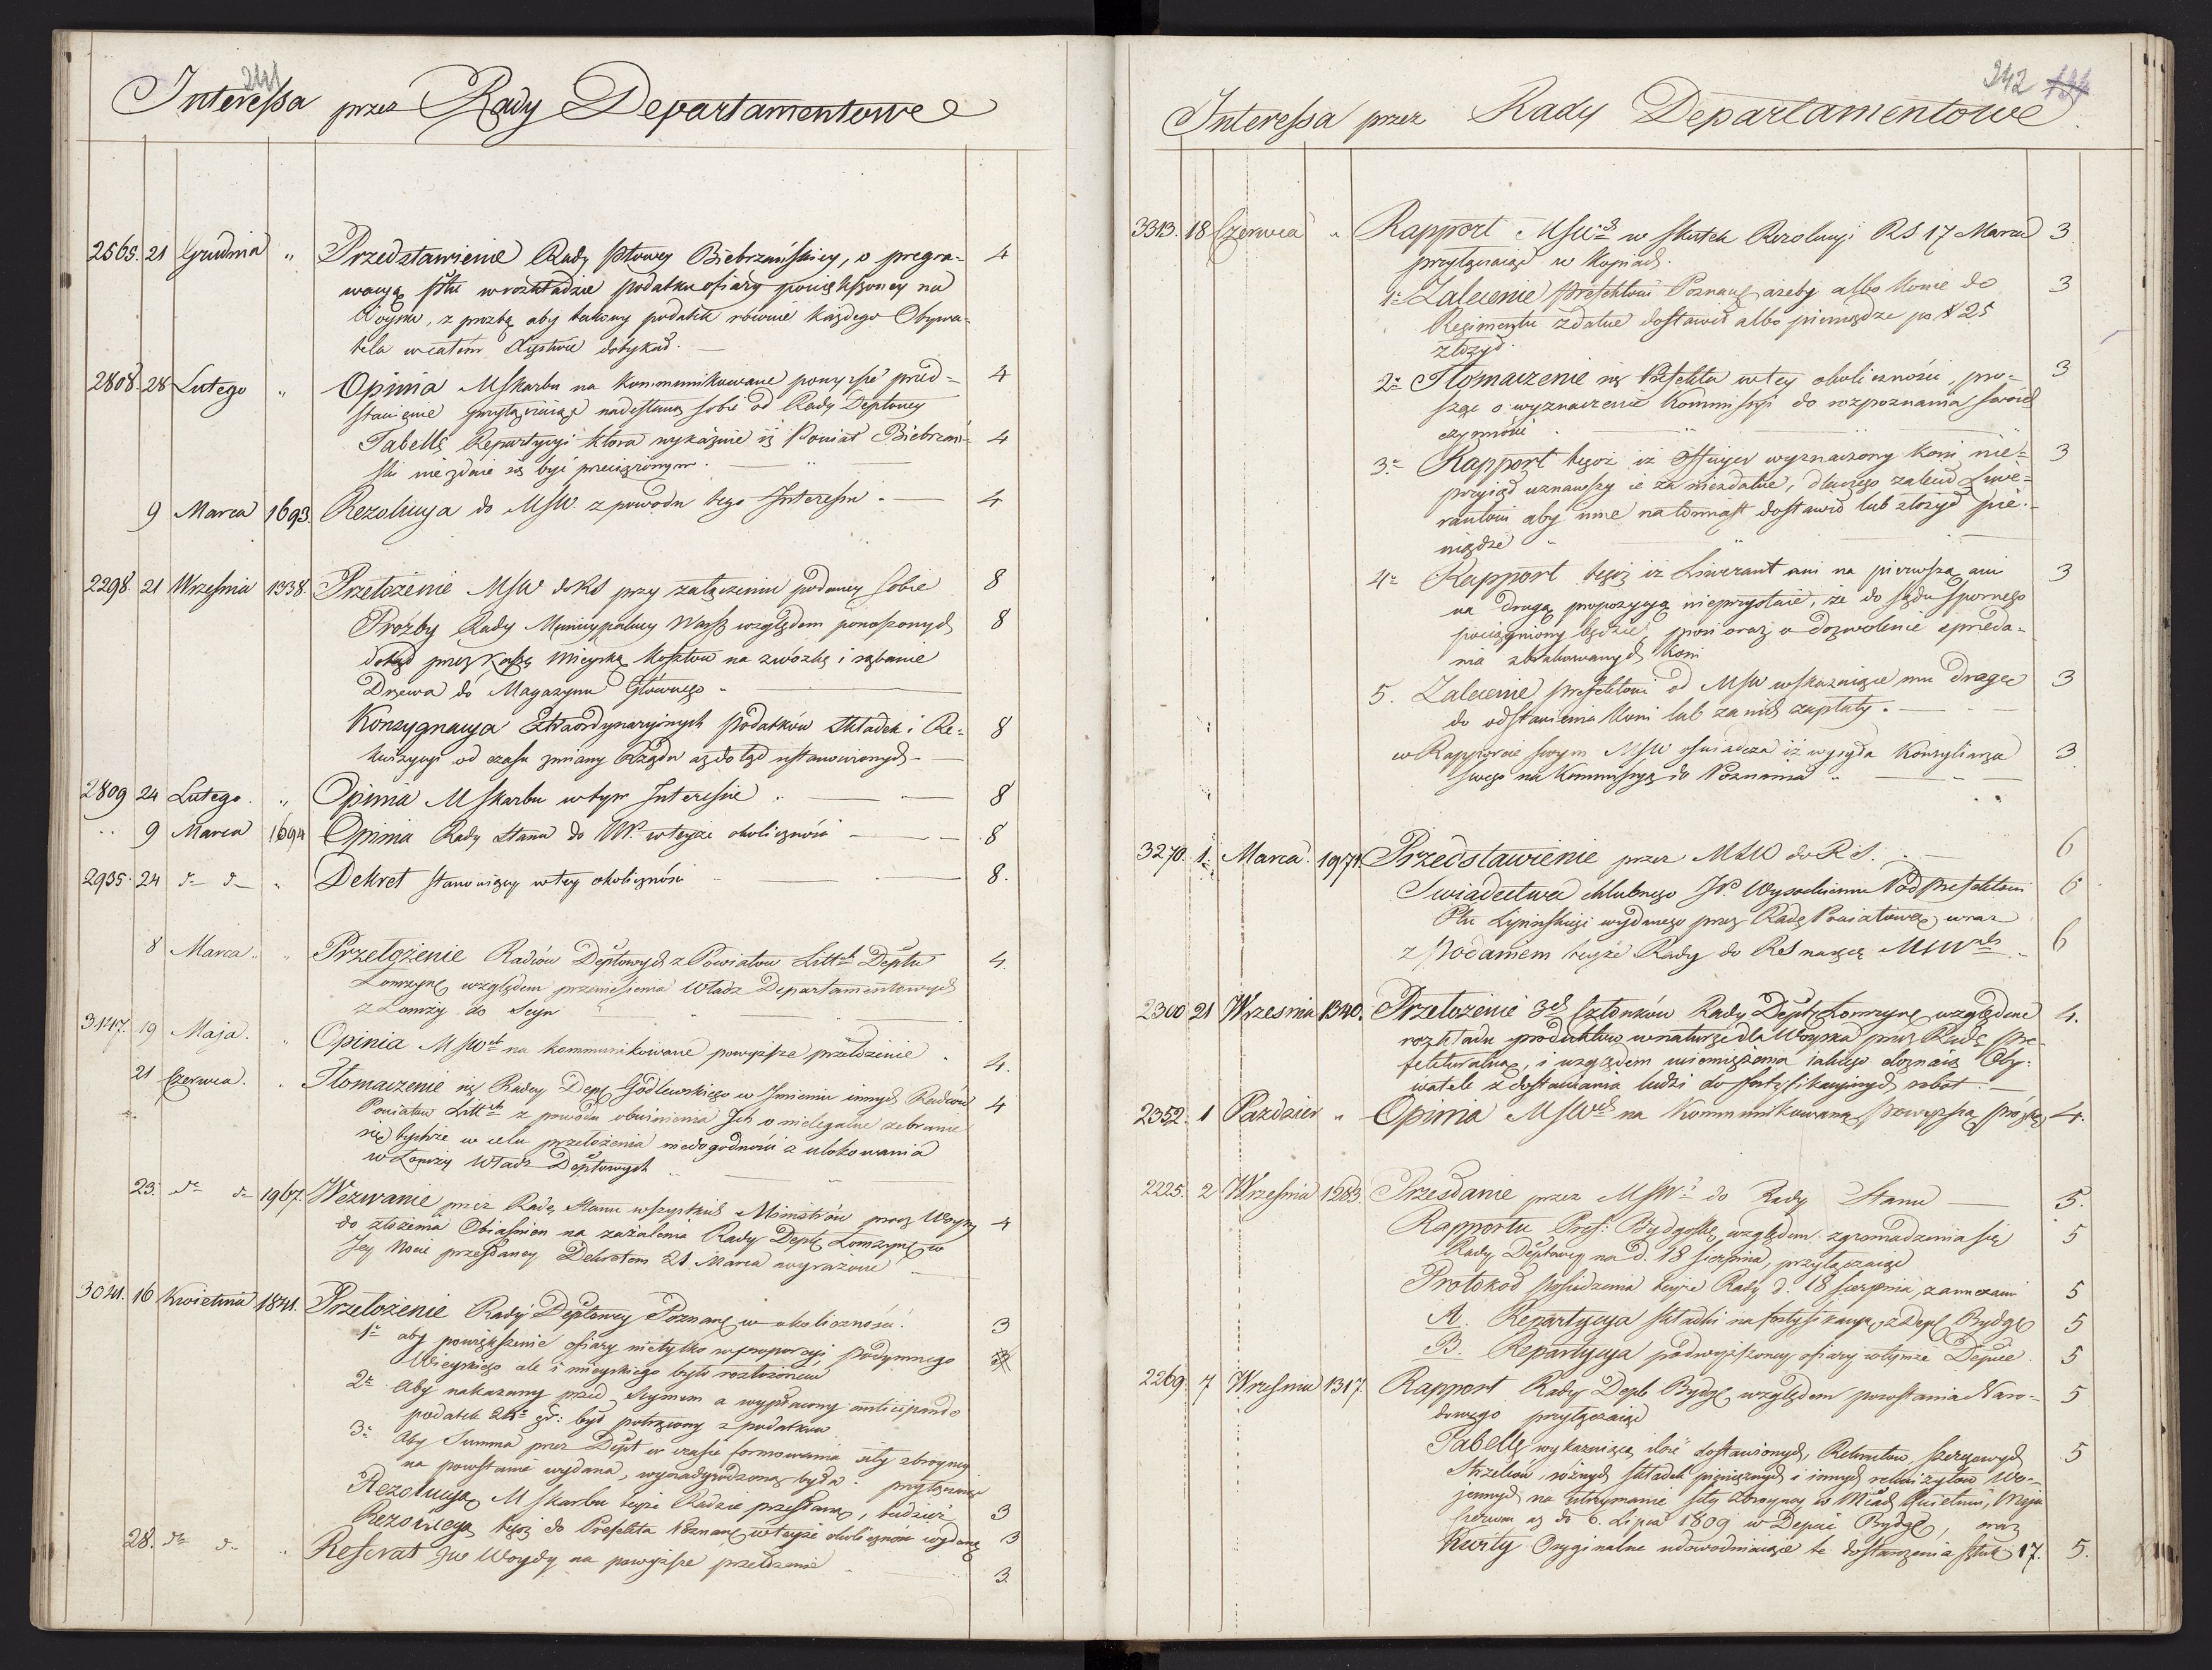 241
Interessa przez Rady Departamentowe
2565. 21 Grudnia „ Przedstawienie Rady Ptowey Biebrzańskiey, o pregra- 4
wacyą Ptu w rozkładzie podatku ofiary powiększoney na
Woysko, z prozbą aby takowy podatek równie każdego Obywa-
tela w całem Xięstwie dotykał.
2808. 28 Lutego „ Opinia MSkarbu na kommunikowane powyższe przed= 4
stawienie przyłączaiąc nadesłaną sobie od Rady Deptowey
Tabellę Repartycyi która wykazuie iż Powiat Biebrzań- 4
ski nie zdaie się być przeciążonym.
9 Marca 1693. Rezolucya do MSW. z powodu tego Interessu. 4
2298. 21 Września 1338. Przełożenie MSW do RS przy załączeniu podaney sobie 8
Proźby Rady Municypalney Warsz względem ponoszonych 8
dotąd przez Kassę Mieyską kosztów na zwózkę i rąbanie
Drzewa do Magazynu Głównego „
Konsygnacya Extraordynaryinych podatków składek i Re- 8
kwizycyi od czasu zmiany Rządu aż do tąd ustanowionych
2809 24 Lutego. „ Opinia MSkarbu w tym Interesie „ 8
„ 9 Marca 1694 Opinia Rady Stanu do NP. w teyże okoliczności 8
2935. 24 do do „ Dekret stanowiący w tey okoliczności 8.
8 Marca „ „ Przełożenie Radców Deptowych z Powiatów Littch Deptu 4.
Łomżyń względem przeniesienia Władz Departamentowych
z Łomży do Seyn
3147. 19 Maja. „ Opinia MSWch na kommunikowane powyższe przełożenie 4.
21 Czerwca. „ Tłomaczenie się Radcy Dept Godlewskiego w Imieniu innych Radców 4
Powiatów Littch z powodu obwinienia Ich o nielegalne zebranie
się tychże w celu przełożenia niedogodności z ulokowania
w Łomży Władz Deptowych
23. do do 1967. Wezwanie przez Radę Stanu wszystkich Ministrów prócz Woyny 4
do złożenia Obiaśnień na zażalenia Rady Dept Łomżyń w
Jey Nocie przesłaney Dekretem 21 Marca wyrażone
3041. 16 Kwietnia 1841. Przełożenie Rady Deptowey Poznań w okoliczności. 3
1o aby powiększenie ofiary nietylko w proporcyi podymnego
Wieyskiego ale i mieyskiego było rozłożonem
2o Aby nakazany przed Rządem a wypłacony anticipando
podatek 24o gr: był potrącony z podatków
3o Aby Summa przez Dept w czasie formowania siły zbroyney
na powstanie wydana, wynadgrodzoną była. przyłączaiąc
Rezolucyą MSkarbu teyże Radzie przesłaną, tudzież 3
Rezolucyą tegoż do Prefekta Poznań w teyże okoliczności wydaną 3
28. do do „ Referat JW Woydy na powyższe przełożenie 3.
242
Interessa przez Rady Departamentowe
3313. 18 Czerwca „ Rapport MSW w skutek Rezolucyi RS 17 Marca 3
przyłączaiąc w Kopiach.
1o Zalecenie Prefektowi Poznań ażeby albo Konie do 3
Regimentu zdatne dostawił albo pieniądze po # 25
złożył.
2o Tłomaczenie się Prefekta w tey okoliczności, pro- 3
sząc o wyznaczenie Kommissyi do rozpoznania swoich
czynności
3o Rapport tegoż iż Officyer wyznaczony koni nie- 3
przyiął uznawszy ie za niezdatne, dlaczego zalecił Liwe-
rantowi aby inne natomiast dostawił lub złożył pie-
niądze
4o Rapport tegoż iż Liwerant ani na pierwszą ani 3
na drugą propozycyą nieprzystaie, że do sądu spornego
pociągniony będzie, prosi oraz o dozwolenie sprzeda-
nia zbrakowanych koni
5. Zalecenie Prefektowi od MSW wskazuiące mu drogę 3
do odstawienia koni lub za nich zapłaty.
w Rapporcie swym MSW oświadcza iż wysyła Konsyliarza 3
swego na Kommissyą do Poznania
3270. 1o Marca 1971. Przedstawienie przez MSW do RS. 6
Swiadectwa chlubnego JP Wysockiemu Podprefektowi 6
Ptu Lipińskiego wydanego przez Radę Powiatową, wraz
z Podaniem teyże Rady do RS na ręce MSW 6
2300 21 Wrzesnia 1340. Przełożenie 3ch Członków Rady Dept Łomżyń względem 4.
rozkładu produktów w naturze dla Woyska przez Radę Pre-
fekturalną, i względem uciemiężenia iakiego doznaią Oby-
watele z dostawiania ludzi do fortyfikacyinych robot.
2352. 1 Pazdzier „ Opinia MSWch na Kommunikowaną powyższą 4.
2225. 2 Września 1283. Przesłanie przez MSW do Rady Stanu 5.
Rapportu Pref: Bydgoskie względem zgromadzenia się 5
Rady Deptowey na d. 18 sierpnia, przyłączaiąc
Protokoł posiedzenia teyże Rady d. 18 sierpnia, 5
A. Repartycya składki na fortyfikacye z Dept Bydg 5
B. Repartycya podwyższoney ofiary w tymże Depcie 5
2269. 7 Września 1317. Rapport Rady Dept Bydg względem powstania Naro- 5
dowego przyłączaiąc
Tabellę wykazuiącą ilość dostawionych, Rekrutów, szeregowych 5
Strzelców, różnych składek pieniężnych i innych rekwizytów Wo-
jennych na utrzymanie siły zbroyney w Miesiącach Kwietniu, Maju
Czerwcu aż do 6. Lipca 1809 w Depcie Bydg, oraz
Kwity Oryginalne udowodniaiące te dostarczenia sztuk 17. 5.